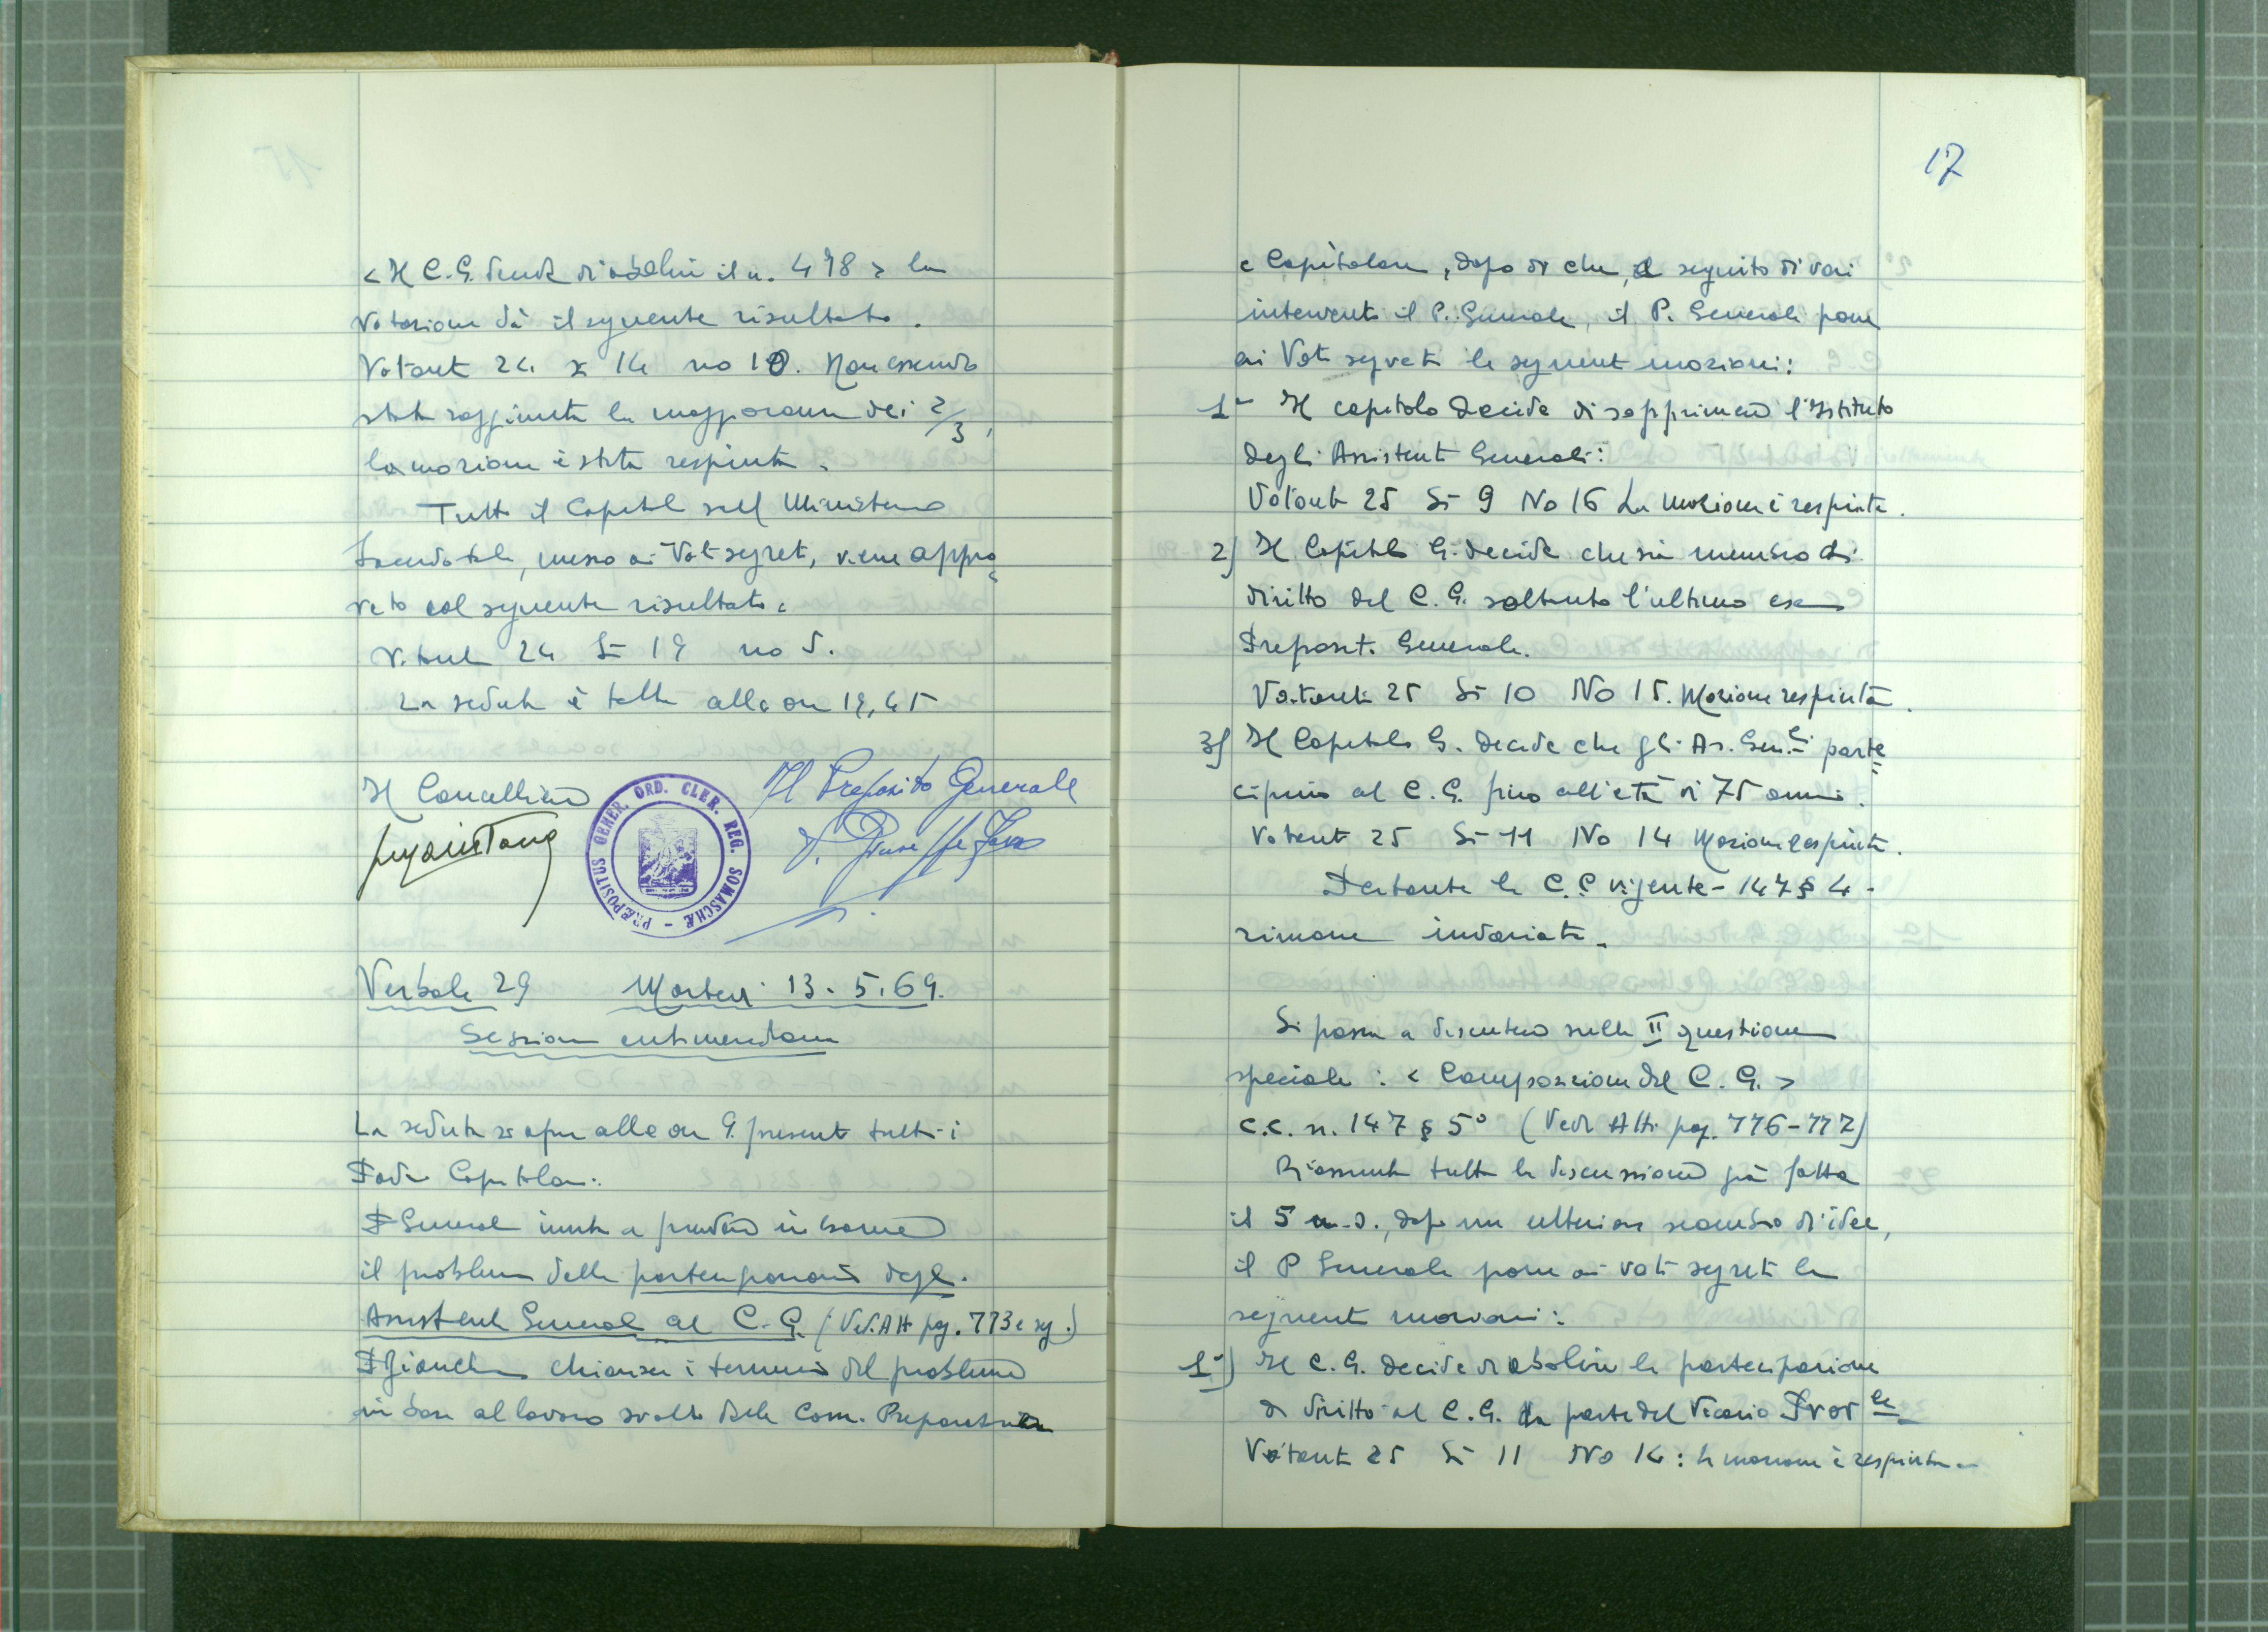 15
< Il C.G. decide di abolire il n. 498 > la
votazione dà il seguente risultato.
Votanti 24 si 14 no 10. Non essendo
stata raggiunta la maggioranza dei 2/3,
la mozione è stata respinta.
Tutto il Capitolo sul Ministero
Sacerdotale, messo ai Voti segreti, viene appro=
vato col seguente risultato:
Votanti 24 Si 19 no 5.
La seduta è tolta alle ore 19,45
Il Cancelliere
Il Preposito Generale
P. Giuseppe
PRÆPOSITUS GENER. ORD. CLER. REG. SOMASCHÆ -
Verbale 29 Martedì 13.5.69.
Sessione antimeridiana
La seduta si apre alle ore 9. presenti tutti i
Padri Capitolari.
P Generale invita a prendere in esame
il problema della partecipazione degli
Assistenti Generali al C.G. (Ved. Atti pag. 773 e sg.)
P Bianchi chiarisce i termini del problema
in base al lavoro svolto dalla Com. Preparatoria
17
e Capitolare, dopo di che, a seguito di vari
interventi il P. Generale, il P. Generale pone
ai Voti segreti le seguenti mozioni:
1ª Il capitolo decide di sopprimere l'Istituto
degli Assistenti Generali:
Votanti 25 Si 9 No 16 La Mozione è respinta.
2) Il Capitolo G. decide che sia membro di
diritto del C.G. soltanto l'ultimo ex
Preposito Generale.
Votanti 25 Si 10 No 15. Mozione respinta.
3) Il Capitolo G. decide che gli As. Gen.li parte=
cipino al C.G. fino all'età di 75 anni.
Votanti 25 Si 11 No 14 Mozione respinta.
Pertanto le C.C vigente - 147 § 4 -
rimane invariato.
Si passa a discutere sulla II questione
speciale: < Composizione del C.G. >
C.C. n. 147 § 5° (Vedi Atti pag. 776-777)
Riassunta tutta la discussione già fatta
il 5 u.s., dopo un ulteriore scambio di idee,
il P Generale pone ai voti segreti le
seguenti mozioni:
1ª) Il C.G. decide di abolire la partecipazione
di diritto al C.G. da parte del Vicario Prov.le
Votanti 25 Si 11 No 14: la mozione è respinta.